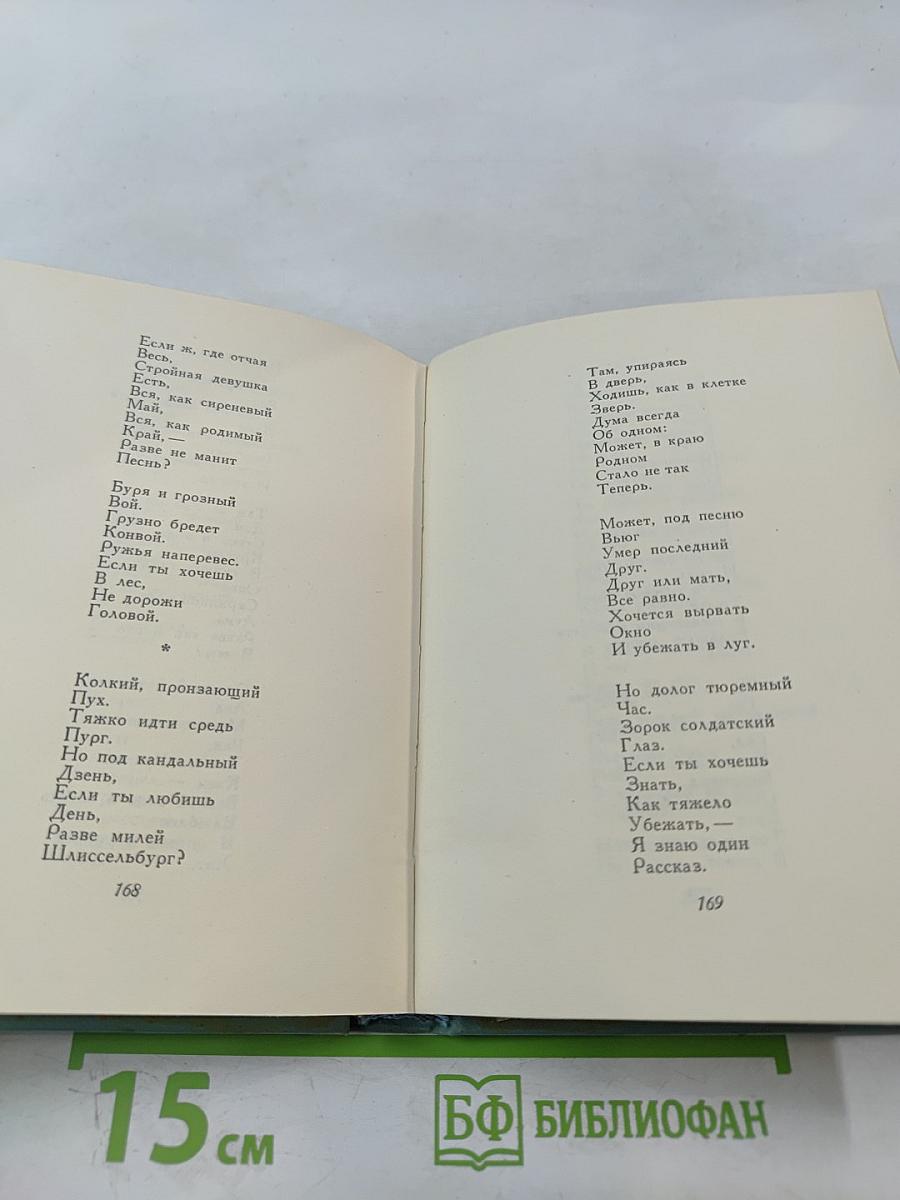 Если ж, где отчая
Весь,
Стройная девушка
Есть,
Вся, как сиреневый
Май,
Вся, как родимый
Край,—
Разве не манит
Песнь?
Буря и грозный
Вой.
Грузно бредет
Конвой.
Ружья наперевес.
Если ты хочешь
В лес,
Не дорожи
Головой.
*
Колкий, пронзающий
Пух.
Тяжко идти средь
Пург.
Но под кандальный
Дзень,
Если ты любишь
День,
Разве милей
Шлиссельбург?
168
Там, упираясь
В дверь,
Ходишь, как в клетке
Зверь.
Дума всегда
Об одном:
Может, в краю
Родном
Стало не так
Теперь.
Может, под песню
Вьюг
Умер последний
Друг.
Друг или мать,
Все равно.
Хочется вырвать
Окно
И убежать в луг.
Но долог тюремный
Час.
Зорок солдатский
Глаз.
Если ты хочешь
Знать,
Как тяжело
Убежать,—
Я знаю один
Рассказ.
169
15 см
БФ БИБЛИОФАН